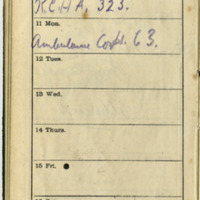 R.C.H.A. 323.
11 Mon.
Ambulance Corps. 63.
12 Tues.
13 Wed.
14 Thurs.
15 Fri. ●